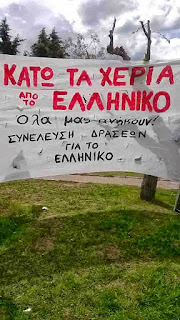 ΚΑΤΩ ΤΑ ΧΕΡΙΑ
ΑΠΟ ΤΟ ΕΛΛΗΝΙΚΟ
Όλα μας ανήκουν!
ΣΥΝΕΛΕΥΣΗ ΔΡΑΣΕΩΝ
ΓΙΑ ΤΟ
ΕΛΛΗΝΙΚΟ